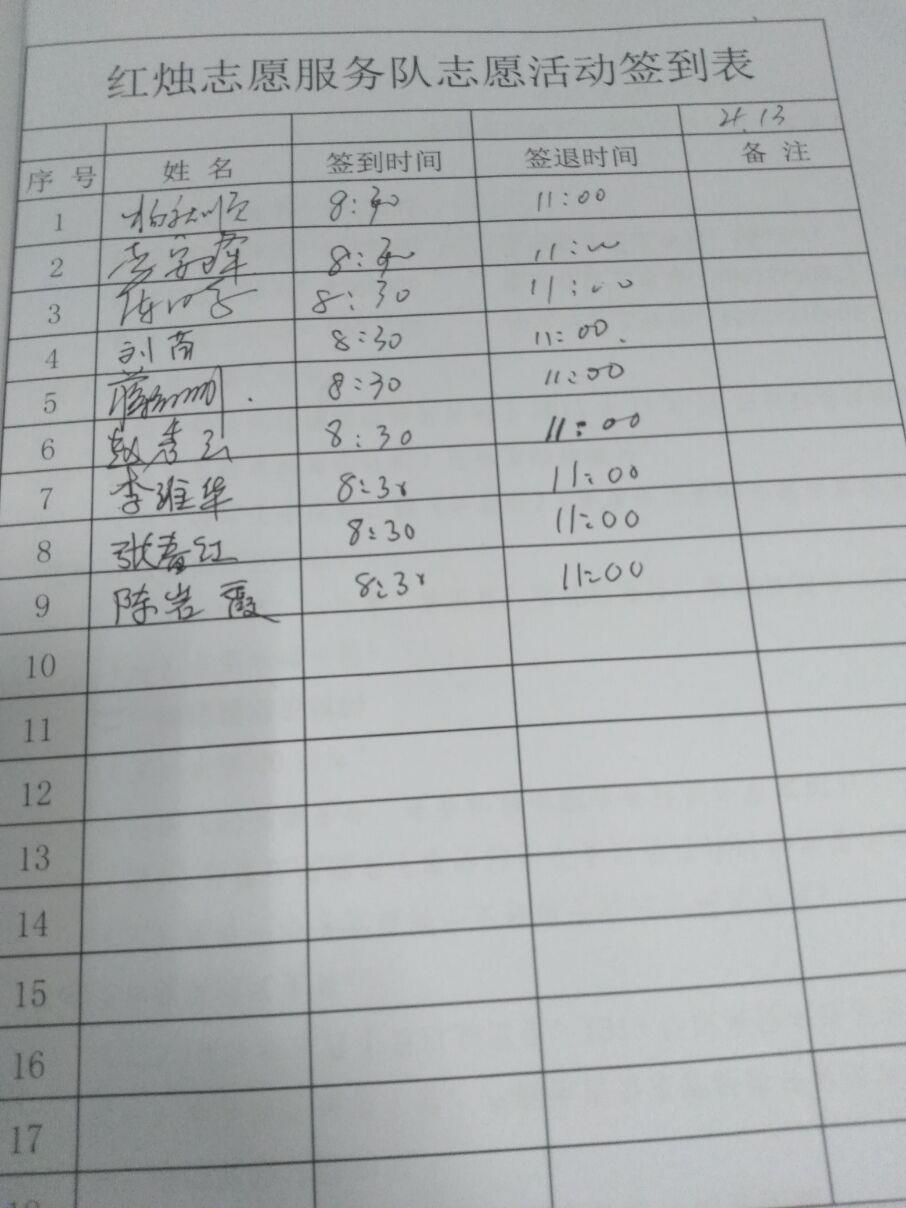 红烛志愿服务队志愿活动签到表
4.13
序号 姓名 签到时间 签退时间 备注
1 8:30 11:00
2 8:30 11:00
3 8:30 11:00
4 刘 8:30 11:00.
5 8:30 11:00
6 赵秀云 8:30 11:00
7 李维华 8:30 11:00
8 张春红 8:30 11:00
9 陈岩霞 8:30 11:00
10
11
12
13
14
15
16
17